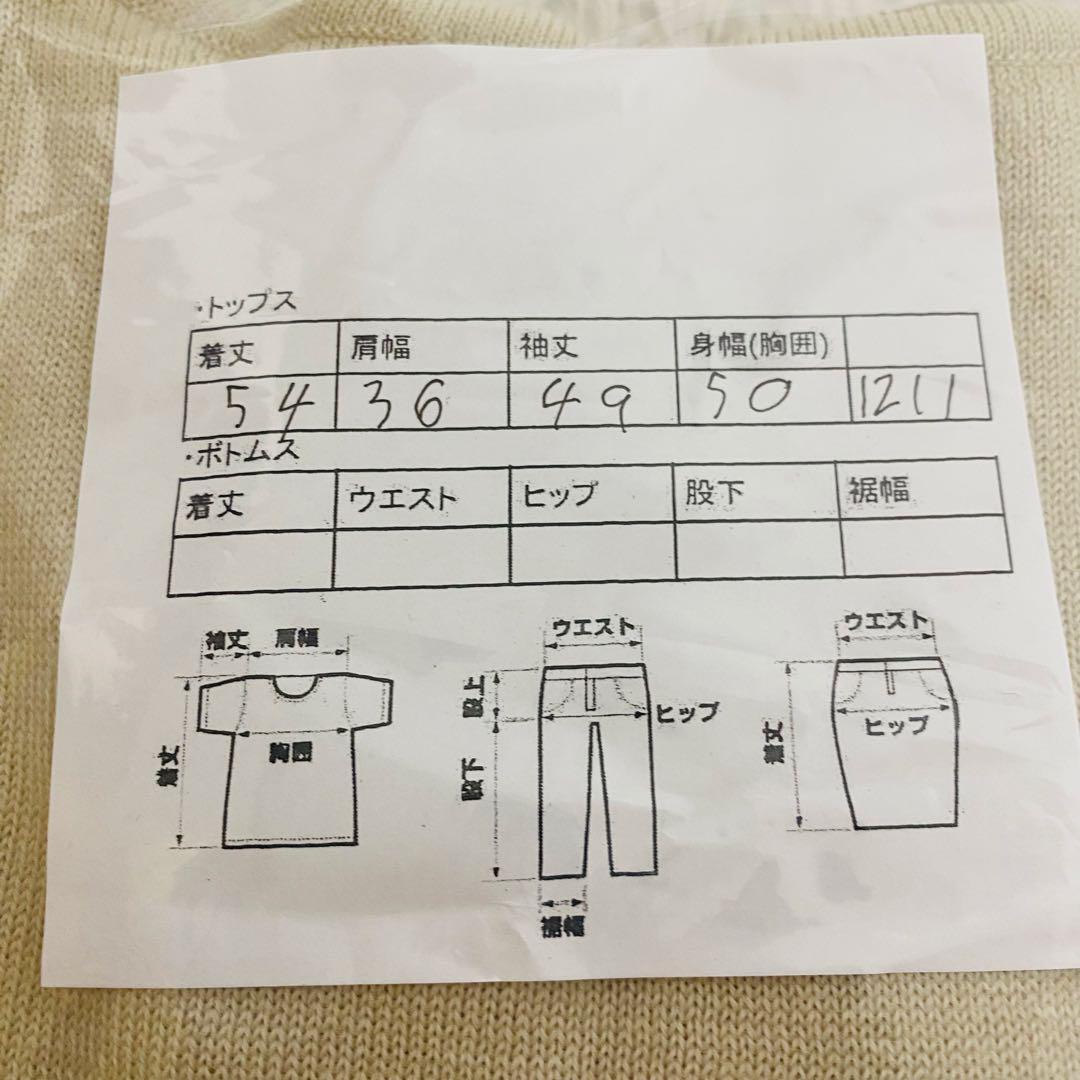 ・トップス
着丈 肩幅 袖丈 身幅(胸囲)
54 36 49 50 1211
・ボトムス
着丈 ウエスト ヒップ 股下 裾幅
袖丈 肩幅
着丈
胸囲
ウエスト
股上
ヒップ
股下
裾幅
ウエスト
着丈
ヒップ